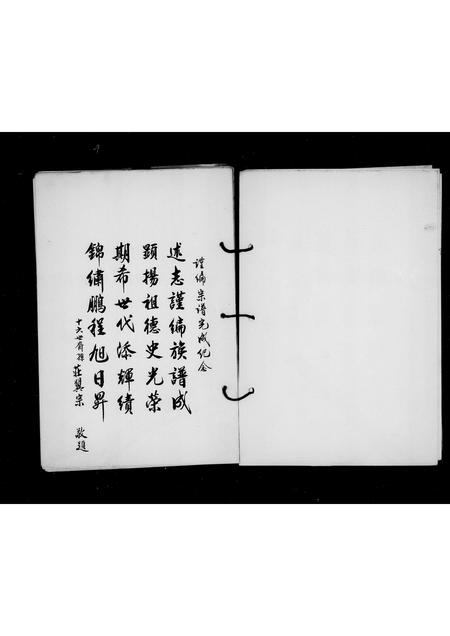 謹編宗譜完成纪念
述志謹編族譜成
顕揚祖德史光榮
期希世代添輝績
錦繡鵬程旭日昇
十六世裔孫莊巽宗 敬題